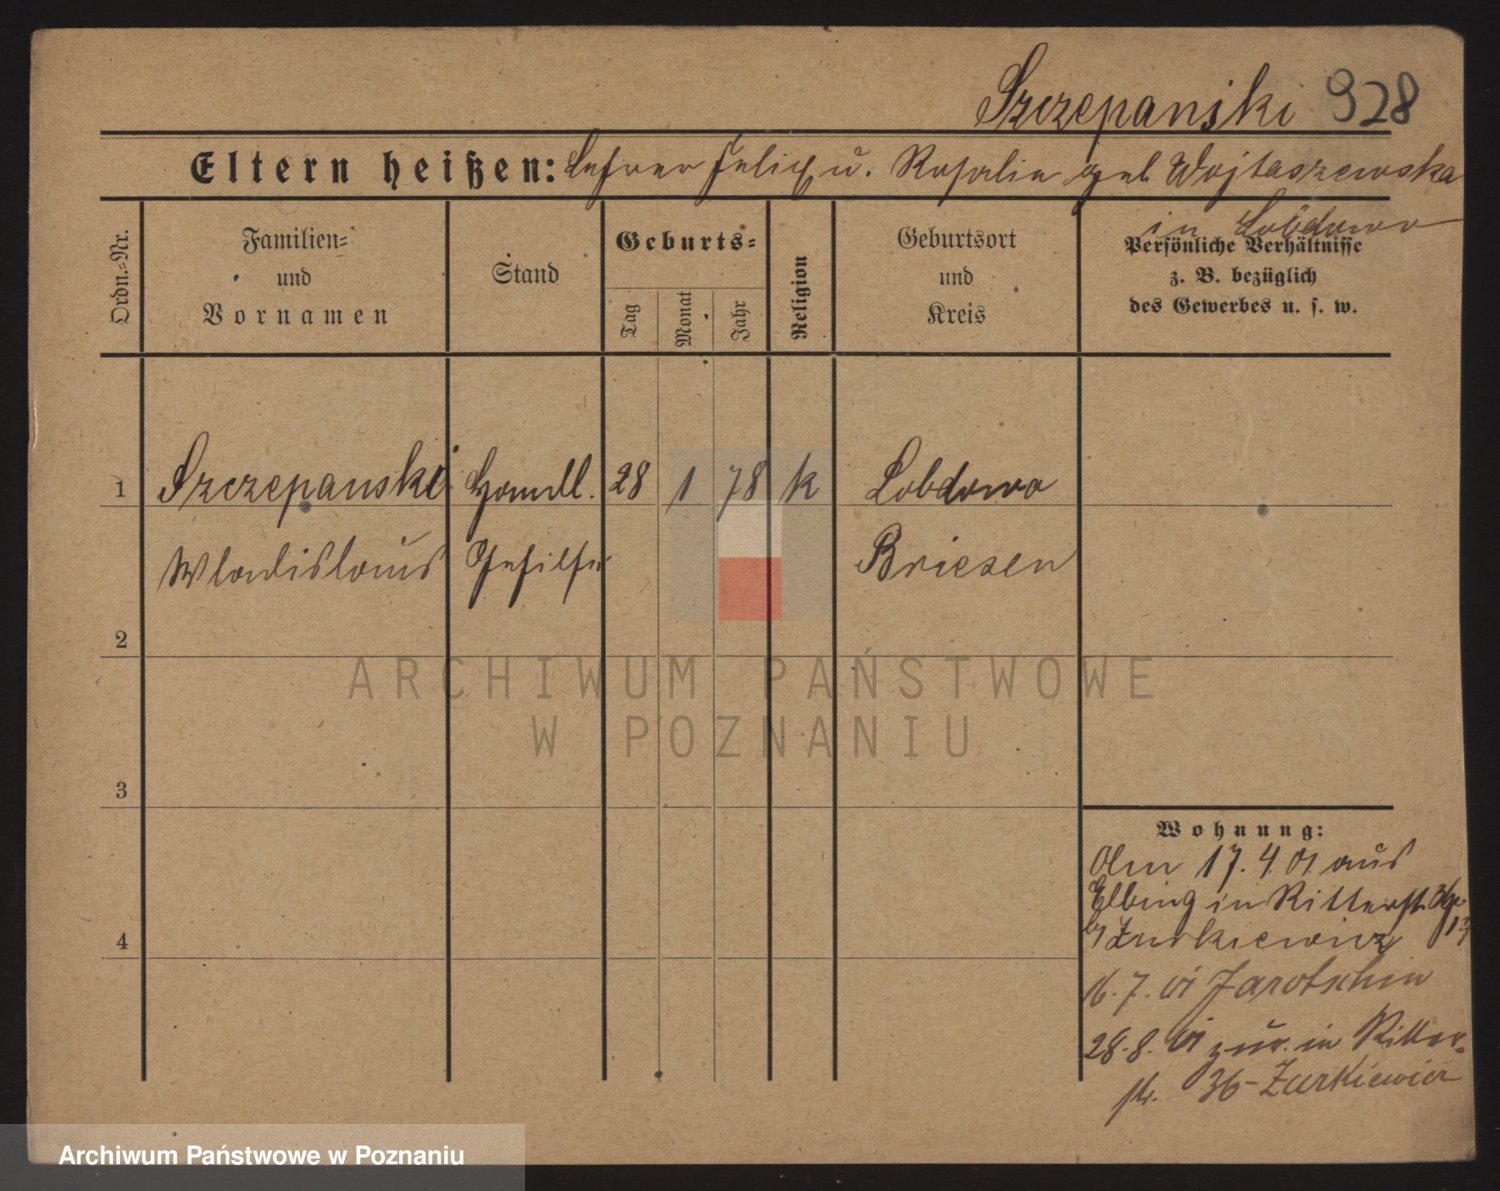 Szczepanski 928
Eltern heißen: Lehrer Felix u. Rosalie geb Wojtaszewska
in Lobdowo
Ordn.=Nr.
Familien=
und
Vornamen
Stand
Geburts=
Tag
Monat
Jahr
Religion
Geburtsort
und
Kreis
Persönliche Verhältnisse
z. B. bezüglich
des Gewerbes u. s. w.
1 Szczepanski Handl. 28 1 78 k Lobdowo
Wladislaus Gehilfe Briesen
2
3
4
Wohnung:
17. 4. 01. aus
Elbing in Ritterstr. 36
b/ Zurkiewicz
16. 7. 01 Jarotschin
28. 8. 01 zur. in Ritter-
str. 36 - Zurkiewicz
ARCHIWUM PAŃSTWOWE
W POZNANIU
Archiwum Państwowe w Poznaniu